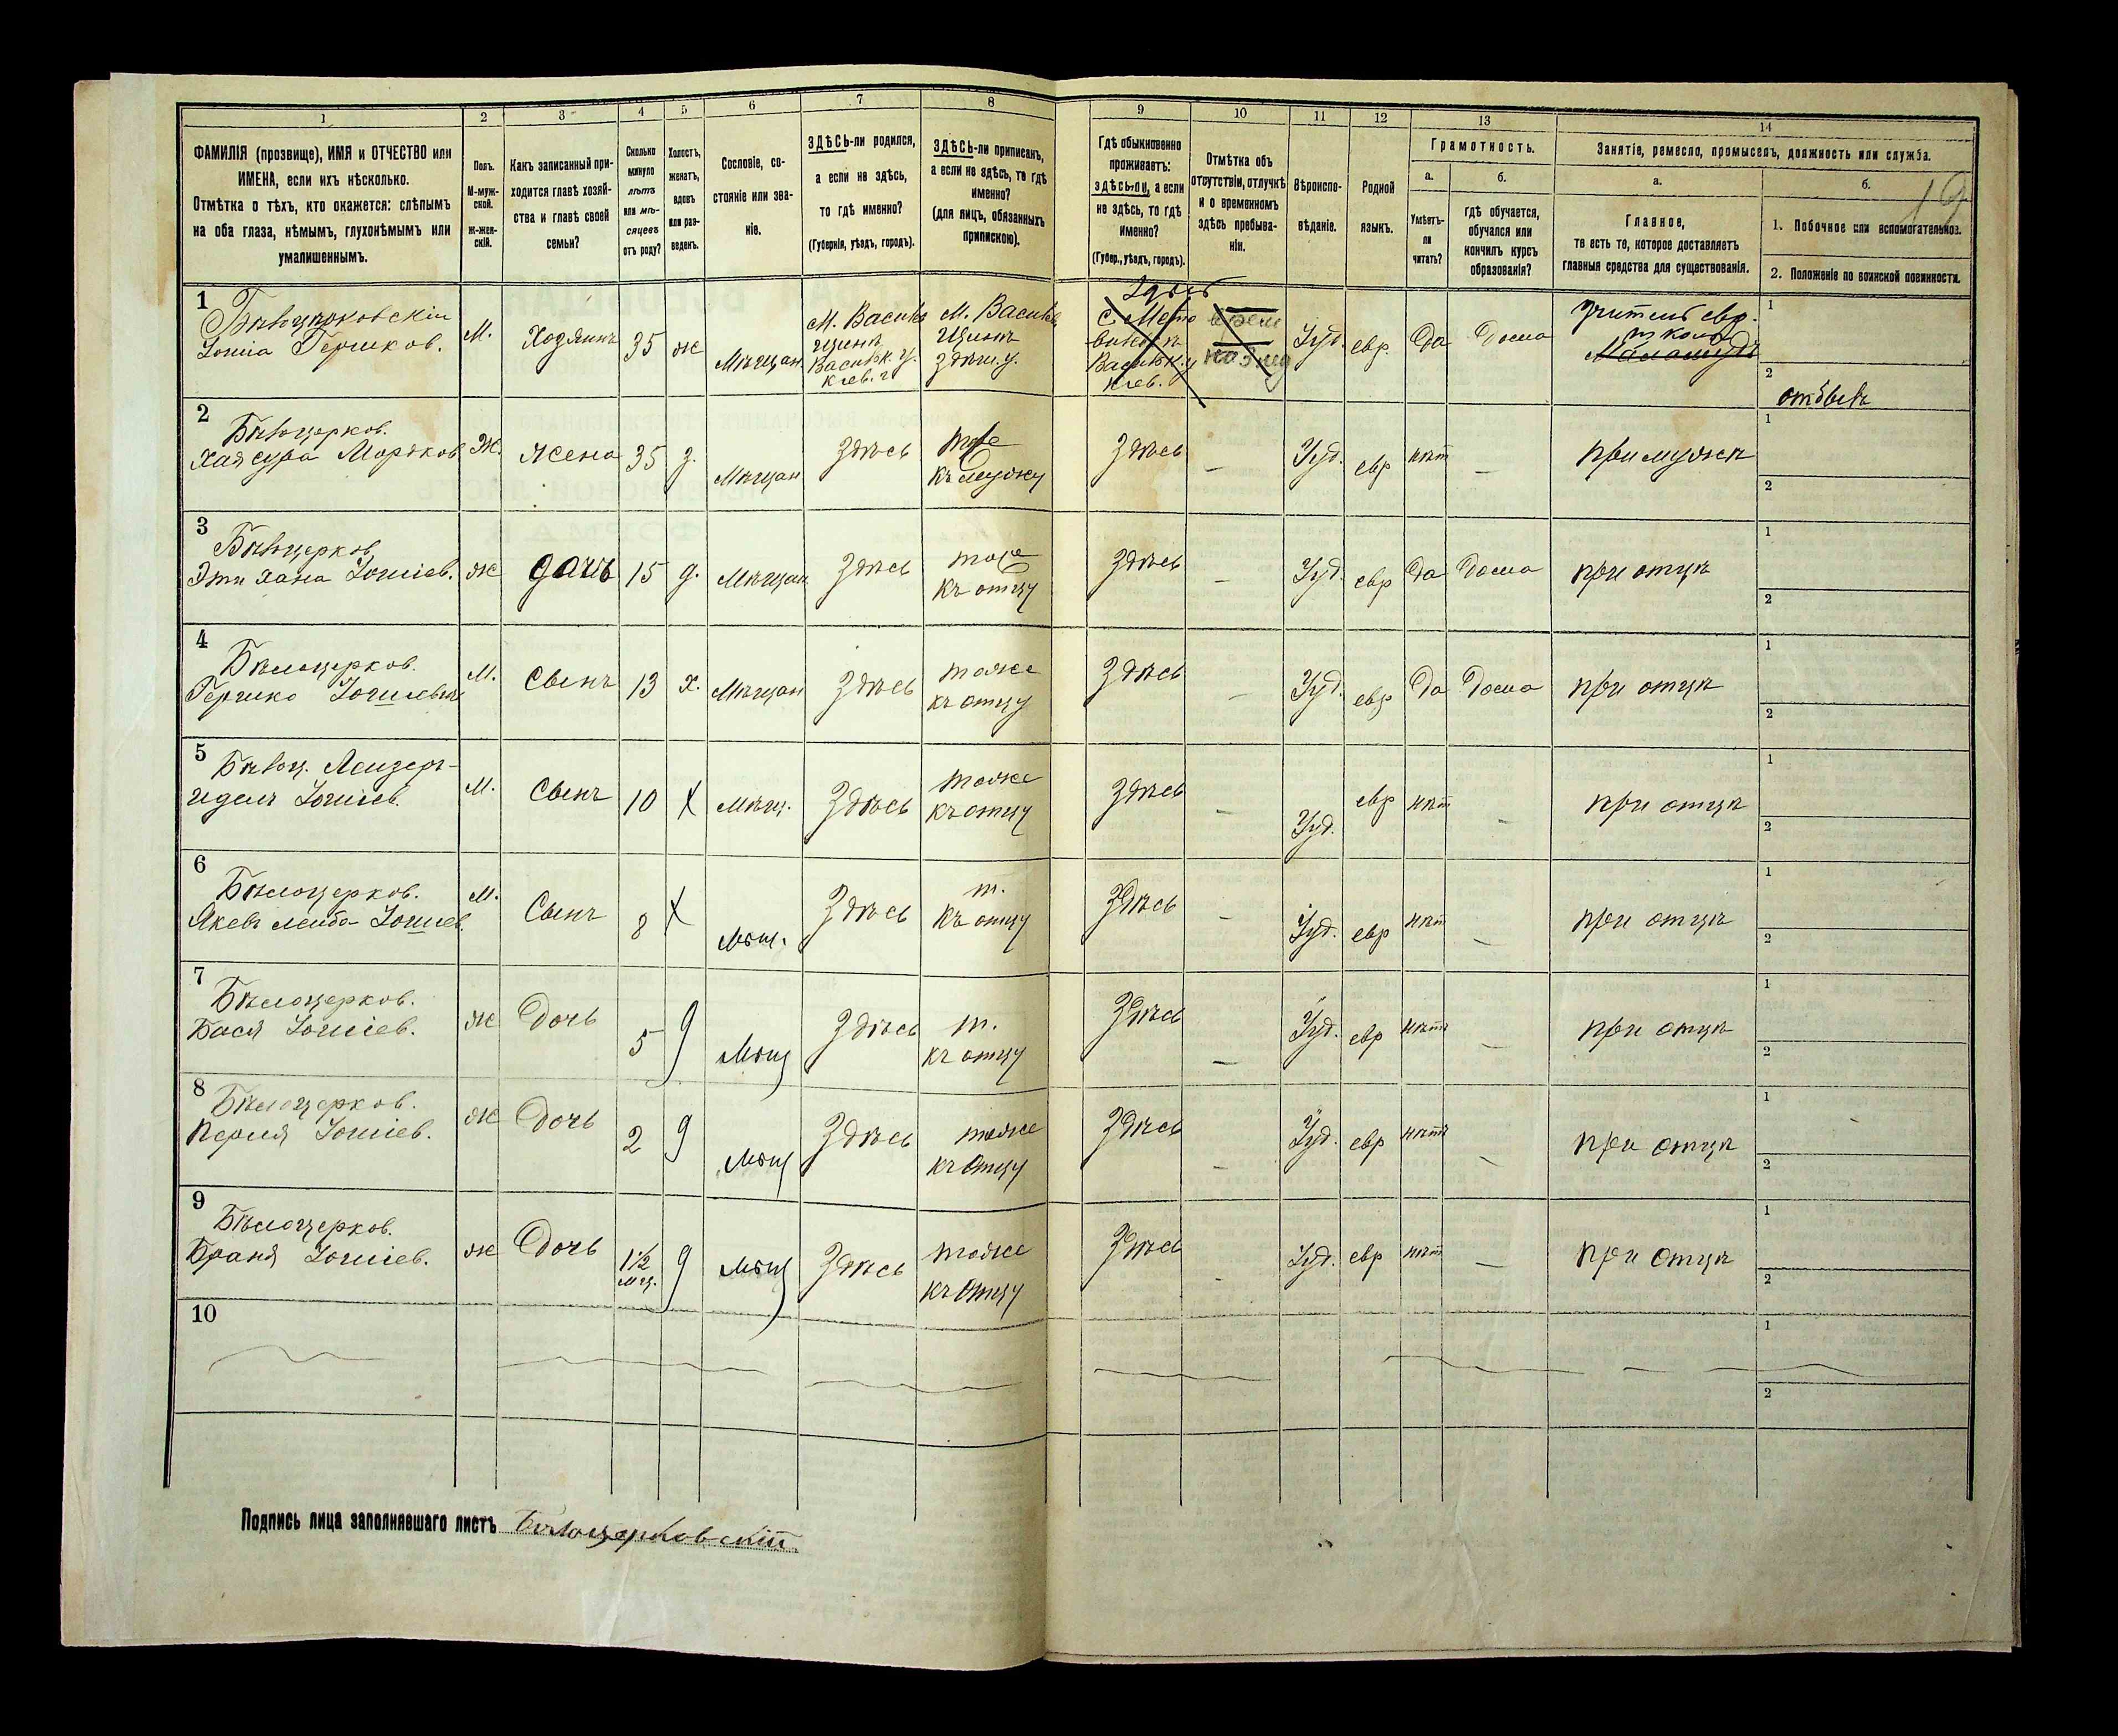 1 2 3 4 5 6 7 8 9 10 11 12 13 14
ФАМИЛІЯ (прозвище), ИМЯ и ОТЧЕСТВО или
ИМЕНА, если ихъ нѣсколько.
Отмѣтка о тѣхъ, кто окажется: слѣпымъ
на оба глаза, нѣмымъ, глухонѣмымъ или
умалишеннымъ.
Полъ.
М-муж-
ской.
Ж-жен-
скій.
Какъ записанный при-
ходится главѣ хозяй-
ства и главѣ своей
семьи?
Сколько
минуло
лѣтъ
или мѣ-
сяцевъ
отъ роду?
Холостъ,
женатъ,
вдовъ
или раз-
веденъ.
Сословіе, со-
стояніе или зва-
ніе.
ЗДѢСЬ-ли родился,
а если не здѣсь,
то гдѣ именно?
(Губернія, уѣздъ, городъ).
ЗДѢСЬ-ли приписанъ,
а если не здѣсь, то гдѣ
именно?
(для лицъ, обязанныхъ
припискою).
Гдѣ обыкновенно
проживаетъ:
ЗДѢСЬ-ли, а если
не здѣсь, то гдѣ
именно?
(Губер., уѣздъ, городъ).
Отмѣтка объ
отсутствіи, отлучкѣ
и о временномъ
здѣсь пребыва-
ніи.
Вѣроиспо-
вѣданіе.
Родной
языкъ.
Грамотность.
а.
Умѣетъ-
ли
читать?
б.
Гдѣ обучается,
обучался или
кончилъ курсъ
образованія?
Занятіе, ремесло, промыселъ, должность или служба.
а.
Главное,
то есть то, которое доставляетъ
главныя средства для существованія.
б.
19
1. Побочное или вспомогательное.
2. Положеніе по воинской повинности.
1
Бѣлоцерковскій
Іошіа Гершков.
М.
Хозяинъ
35
ж
Мѣщан.
М. Васильк.
Васильк. у.
Кіев. г
М. Васильк.
здѣш. у.
Здѣсь
Васильк. у
Кіев.
Іуд.
евр.
Да
Дома
учитель евр.
школы
1
2
отбылъ
2
Бѣлоцерков.
Хая сура Мордков
Ж.
жена
35
з.
Мѣщан
Здѣсь
тоже
къ мужу
Здѣсь
—
Іуд.
евр
нѣт
—
при мужѣ
1
2
3
Бѣлоцерков
Эти хана Іошіев.
ж
дочь
15
д.
Мѣщан
Здѣсь
тоже
къ отцу
Здѣсь
—
Іуд.
евр
Да
Дома
при отцѣ
1
2
4
Бѣлоцерков.
Гершко Іошіевич
М.
Сынъ
13
х.
Мѣщан
Здѣсь
тоже
къ отцу
Здѣсь
—
Іуд.
евр
Да
Дома
при отцѣ
1
2
5
Бѣлоц. Лейзер-
идель Іошіев.
М.
Сынъ
10
х
Мѣщ.
Здѣсь
тоже
къ отцу
Здѣсь
—
Іуд.
евр
нѣт
—
при отцѣ
1
2
6
Бѣлоцерков.
Якевъ лейба Іошіев.
М.
Сынъ
8
х
Мѣщ.
Здѣсь
т.
къ отцу
Здѣсь
—
Іуд.
евр
нѣт
—
при отцѣ
1
2
7
Бѣлоцерков.
Бася Іошіев.
ж
Дочь
5
д
Мѣщ
Здѣсь
т.
къ отцу
Здѣсь
—
Іуд.
евр
нѣт
—
при отцѣ
1
2
8
Бѣлоцерков.
Перля Іошіев.
ж
Дочь
2
д
Мѣщ
Здѣсь
тоже
къ отцу
Здѣсь
—
Іуд.
евр
нѣтъ
—
при отцѣ
1
2
9
Бѣлоцерков.
Браня Іошіев.
ж
Дочь
1½
мц.
д
Мѣщ
Здѣсь
тоже
къ отцу
Здѣсь
—
Іуд.
евр
нѣт
—
при отцѣ
1
2
10
1
2
Подпись лица заполнявшаго листъ Бѣлоцерковскій